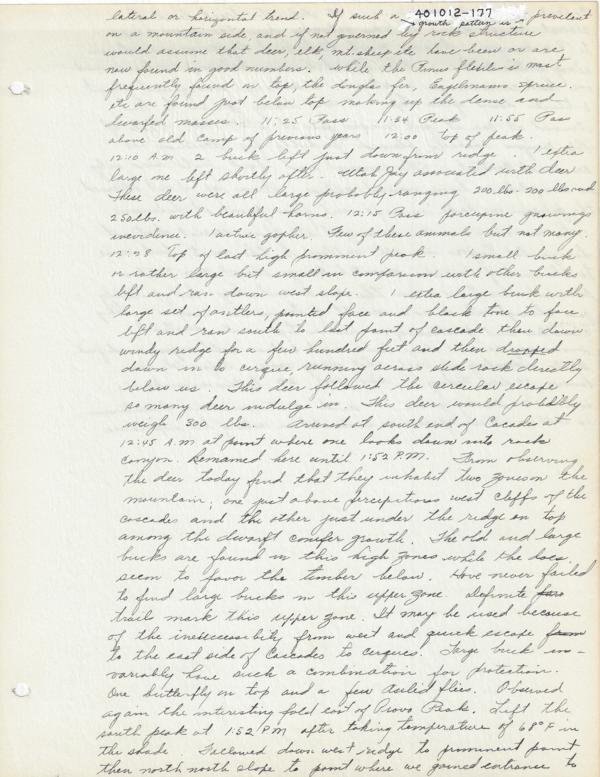 401012-177
lateral or horizontal trend. If such a growth pattern is prevelant
on a mountain side, and if not governed by rock structure
would assume that deer, elk, mt. sheep etc have been or are
now found in good numbers. While the Pinus flexilis is most
frequently found on top, the douglas fir, Engelmanns spruce.
etc are found just below top making up the dense and
dwarfed masses. 11:25 Pass 11:34 Peak 11:55 Pass
above old camp of previous years 12:00 top of peak.
12:10 A.M 2 buck left just down from ridge. 1 extra
large one left shortly after. Utah Jay associated with deer
These deer were all large probably ranging 200 lbs. 200 lbs and
250 lbs. with beautiful horns. 12:15 Pass porcupine gnawings
in evidence. 1 active gopher. Few of these animals but not many.
12:28 Top of last high prominent peak. 1 small buck
or rather large but small in comparison with other bucks
left and ran down west slope. 1 extra large buck with
large set of antlers, pointed face and black tone to face
left and ran south to last point of cascade then down
windy ridge for a few hundred feet and then dropped
down in to cirque, running across slide rock directly
below us. This deer followed the circular escape
so many deer indulge in. This deer would probably
weigh 300 lbs. Arrived at south end of Cascades at
12:45 A.M at point where one looks down into rock
canyon. Remained here until 1:52 P.M. From observing
the deer today find that they inhabit two zones on the
mountain; one just above percipitious west cliffs of the
cascades and the other just under the ridge on top
among the dwarft conifer growth. The old and large
bucks are found in this high zones while the does
seem to favor the timber below. Have never failed
to find large bucks in this upper zone. Definite
trail mark this upper zone. It may be used because
of the inaccessibity from west and quick escape from
to the east side of Cascades to cirques. Large buck in-
variably have such a combination for protection.
One butterfly on top and a few flies. Observed
again the interesting fold east of Provo Peak. Left the
south peak at 1:52 P.M after taking temperature of 68° F in
the shade. Followed down west ridge to prominent point
then north north slope to point where we gained entrance to